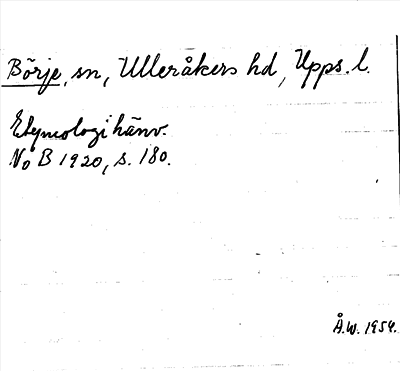 Börje, sn, Ulleråkers hd, Upps. l.
Etymologi hänv.
No B 1920, s. 180.
Å.W. 1954.